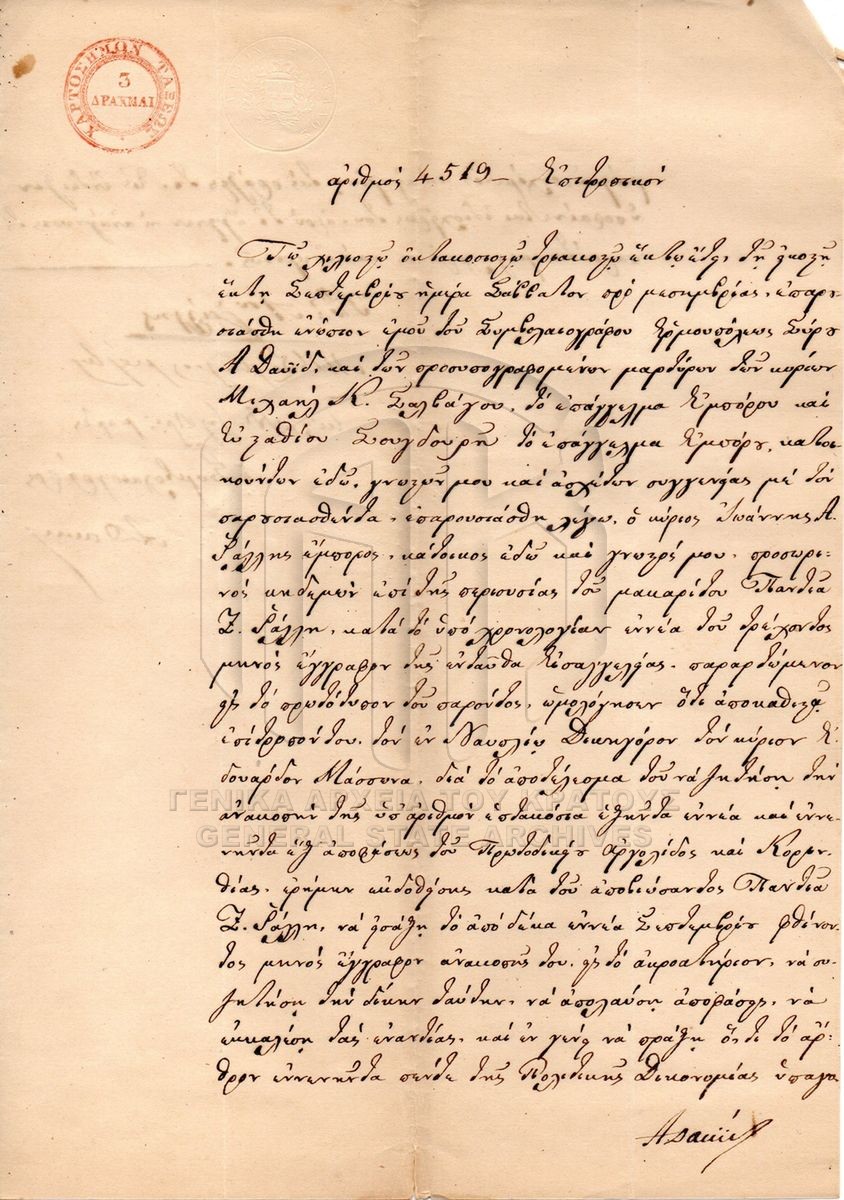 ΧΑΡΤΟΣΗΜΟΝ ΤΑΞΕΩΣ
3
ΔΡΑΧΜΑΙ
ἀριθμός 4519 – Ἐπιτροπικόν
Τῷ χιλιοστῷ ὀκτακοσιοστῷ τριακοστῷ ἕκτῳ ἔτει, τῇ εἰκοστῇ
ἕκτῃ Σεπτεμβρίου ἡμέρᾳ Σάββατον πρό μεσημβρίας, ἐπαρου-
σιάσθη ἐνώπιον ἐμοῦ τοῦ Συμβολαιογράφου Ἑρμουπόλεως Σύρου
Α Δαυίδ, καί τῶν προσυπογραφομένων μαρτύρων τῶν κυρίων
Μιχαήλ Κ. Σαλβάγου, τό ἐπάγγελμα Ἐμπόρου καί
Εὐσταθίου Σουγδουρῆ τό ἐπάγγελμα Ἐμπόρου, κατοι-
κούντων ἐδῶ, γνωστῶν μου καί ἀσχέτων συγγενείας μέ τόν
παρουσιασθέντα, ἐπαρουσιάσθη λέγω, ὁ κύριος Ἰωάννης Α.
Ῥάλλης ἔμπορος, κάτοικος ἐδῶ καί γνωστός μου, προσωρι-
νός κηδεμών ἐπί τῆς περιουσίας τοῦ μακαρίτου Παντιᾶ
Ζ. Ῥάλλη, κατά τό ὑπό χρονολογίαν ἐννέα τοῦ τρέχοντος
μηνός ἔγγραφον τῆς ἐνταῦθα Εἰσαγγελίας, παραρτώμενον
εἰς τό πρωτότυπον τοῦ παρόντος, ὡμολόγησεν ὅτι ἀποκαθιστᾷ
ἐπίτροπόν του, τόν ἐν Ναυπλίῳ Δικηγόρον τόν κύριον Ἐ-
δουάρδον Μάσσωνα, διά τό ἀποτέλεσμα τοῦ νά ζητήσῃ τήν
ἀνακοπήν τῆς ὑπ' ἀριθμόν ἑπτακόσια ἑξῆντα ἐννέα καί ἐννε-
νῆντα ἕξ ἀποφάσεως τοῦ Πρωτοδικείου Ἀργολίδος καί Κοριν-
θίας, ἐρήμην ἐκδοθείσης κατά τοῦ ἀποβιώσαντος Παντιᾶ
Ζ. Ῥάλλη, νά εἰσάξῃ τό ἀπό δέκα ἐννέα Σεπτεμβρίου φθίνον-
τος μηνός ἔγγραφον ἀνακοπῆς του, εἰς τό ἀκροατήριον, νά συ-
ζητήσῃ τήν δίκην ταύτην, νά ἀπολαύσῃ ἀποφάσεις, νά
ἐκκαλέσῃ τάς ἐναντίας, καί ἐν γένει νά πράξῃ ὅ,τι τό ἄρ-
θρον ἐννενῆντα πέντε τῆς Πολιτικῆς Δικονομίας ὑπαγο
ΓΕΝΙΚΑ ΑΡΧΕΙΑ ΤΟΥ ΚΡΑΤΟΥΣ
GENERAL STATE ARCHIVES